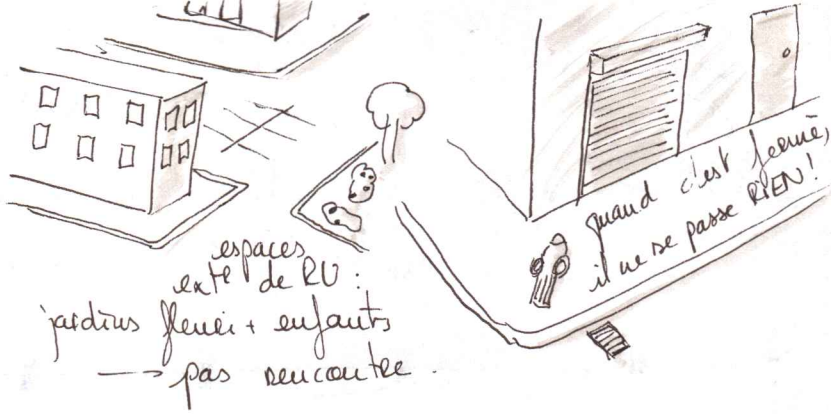 espaces
extᵉ de RU :
jardins fleuri + enfants
→ pas rencontre.
quand c'est fermé,
il ne se passe RIEN !